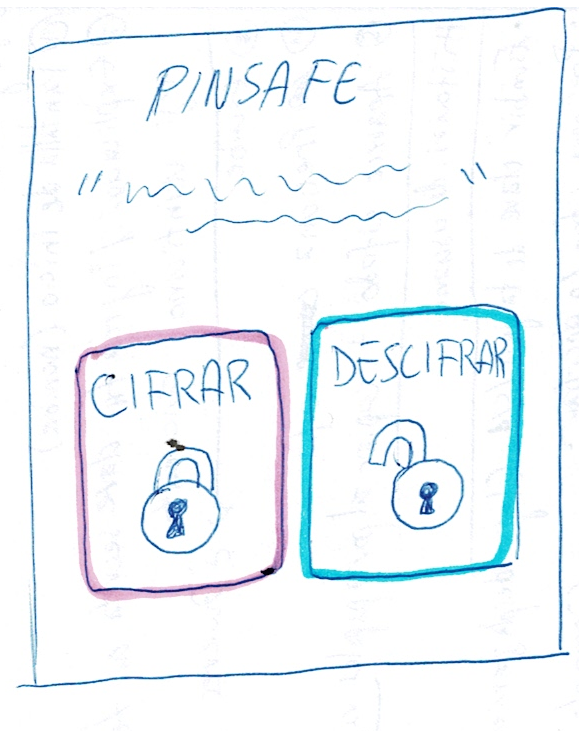 PINSAFE
CIFRAR
DESCIFRAR